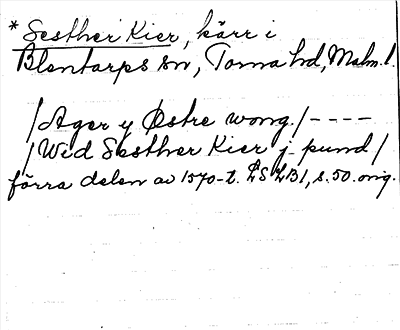 * Sesther Kier, kärr i
Blentarps sn, Torna hd, Malm. l.
/Ager y Østre wong./----
/Wed Sesther Kier j pund/
förra delen av 1570-t. LSLB1, s. 50. orig.